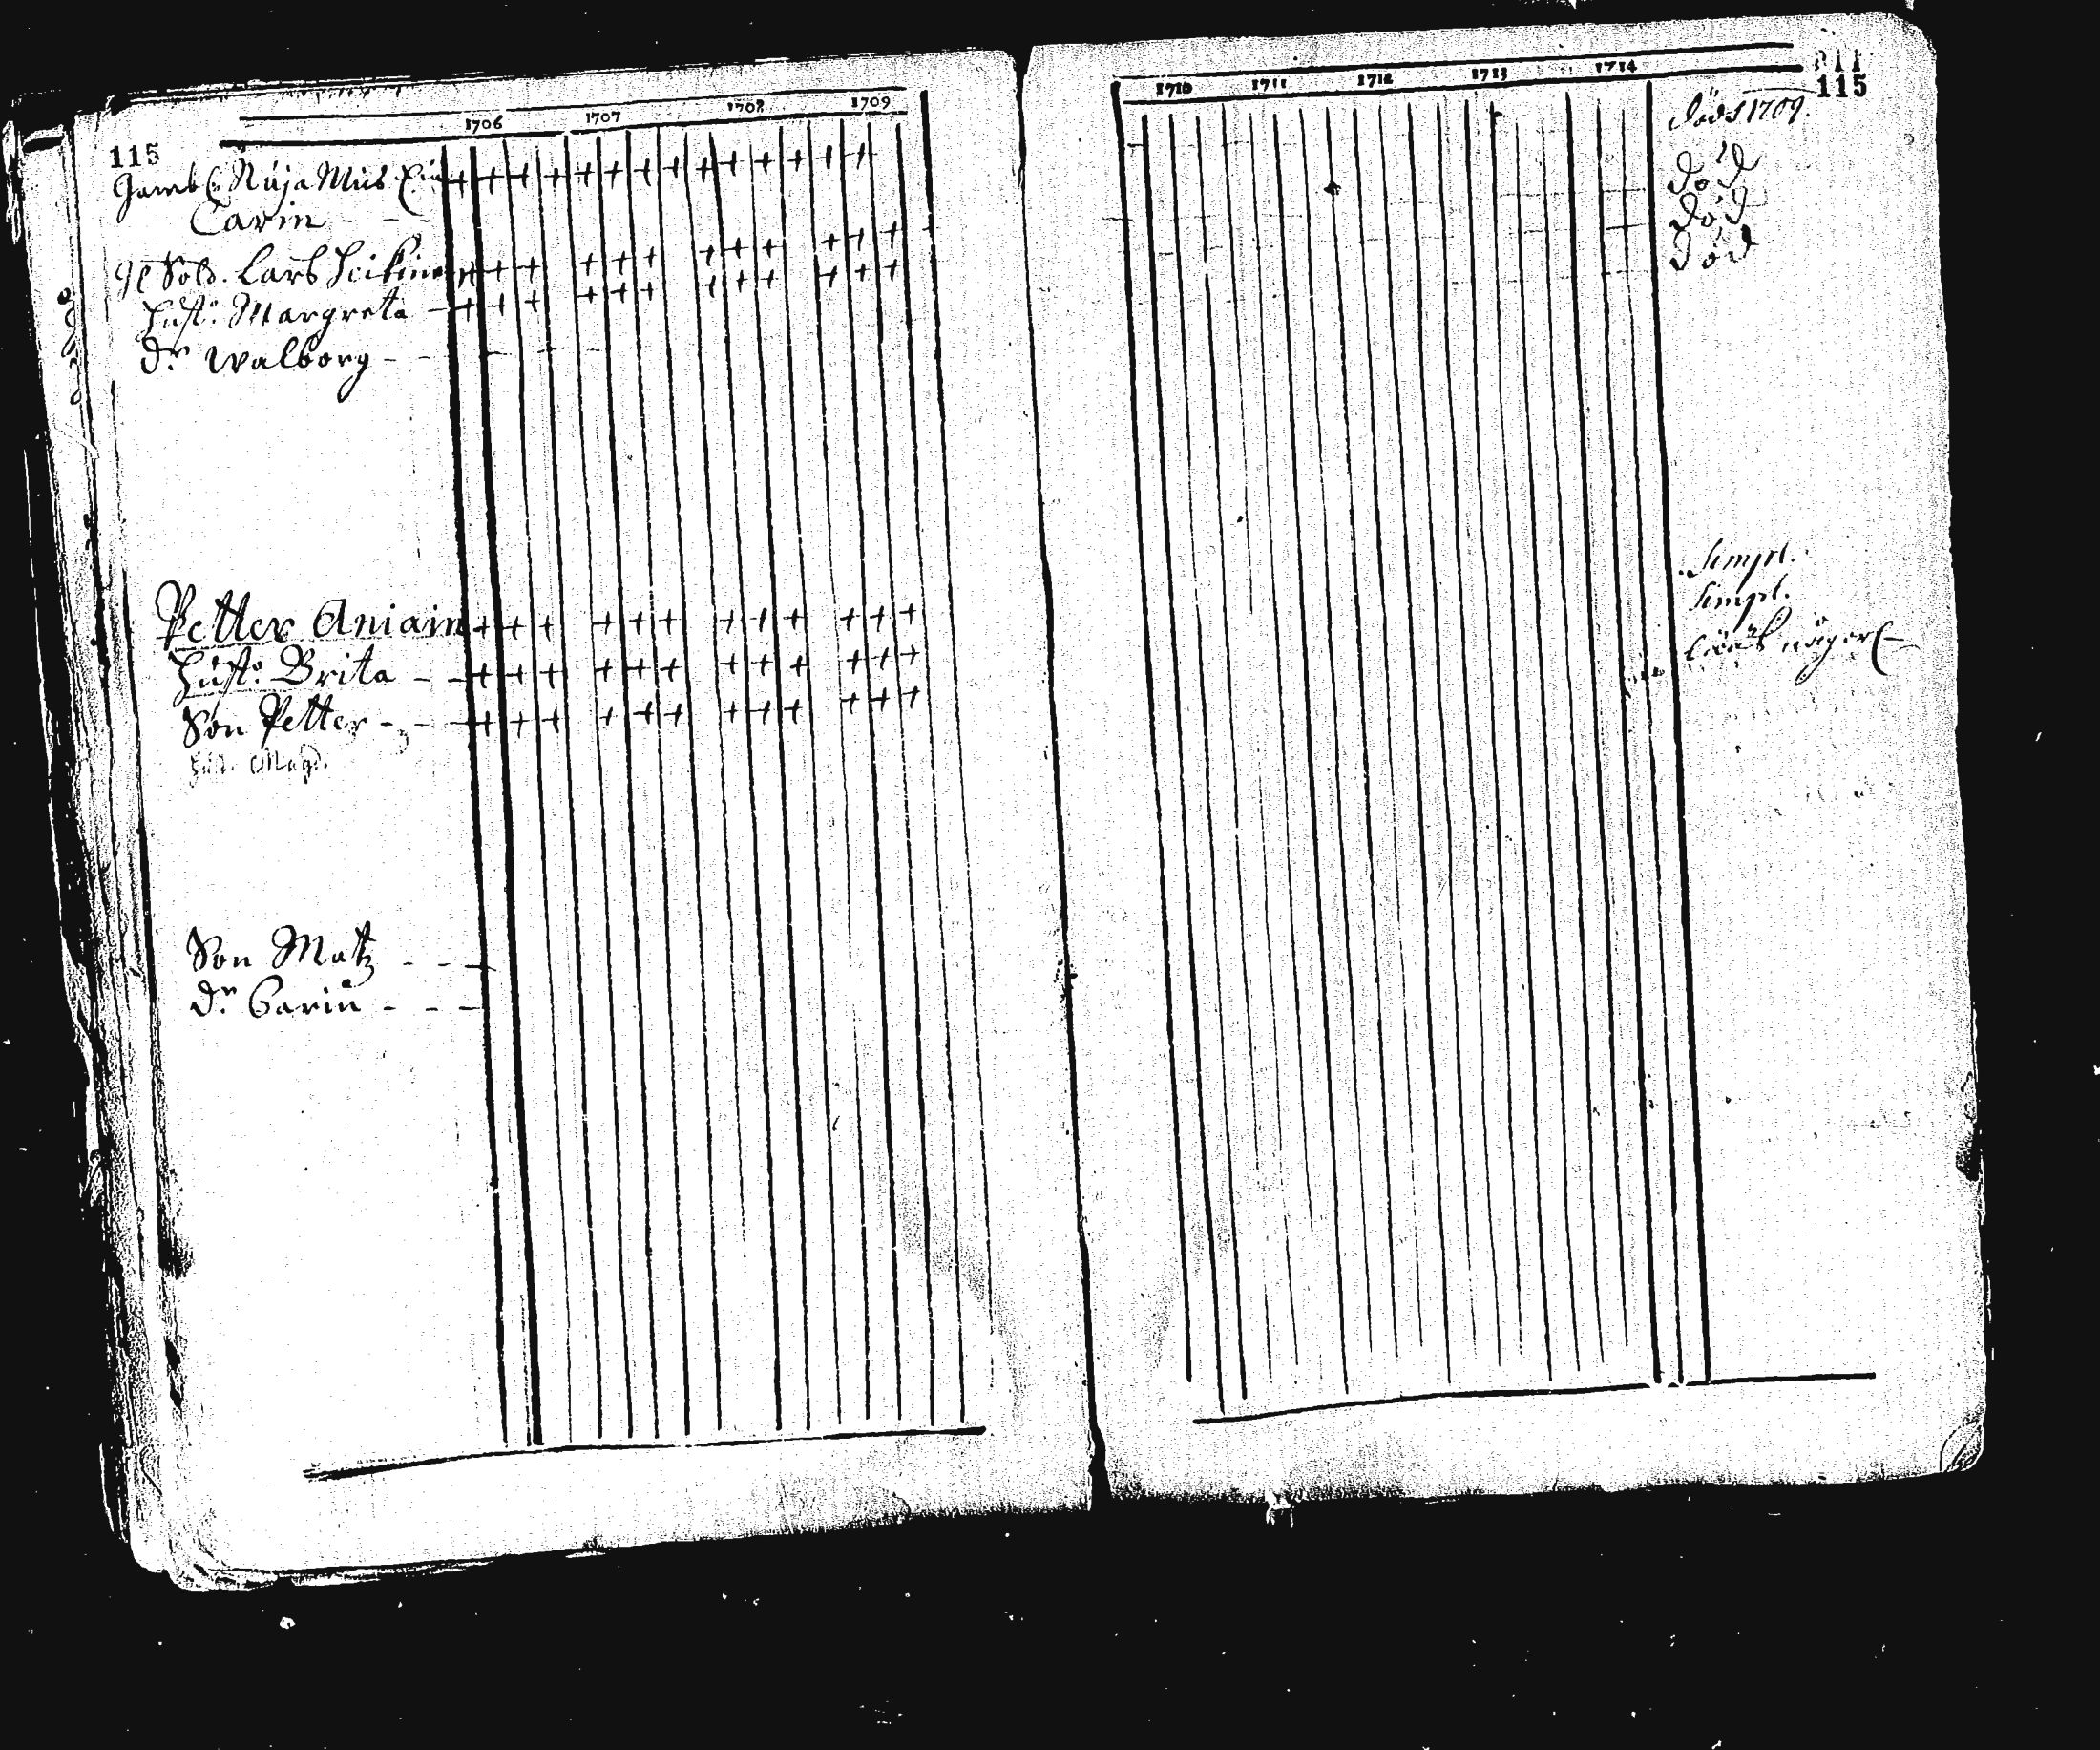 1706 1707 1708 1709
115
Carin - - -
gl Sold. Lars
Hust: Margreta -
Dr Walborg - -
Petter Aniain
Hust: Brita - -
Son Petter - - -
Hust. Magd.
Son Matz - - -
Dr Carin - - -
1710 1711 1712 1713 1714
115
Död 1709.
Död
Död
Död
Simpl.
Simpl.